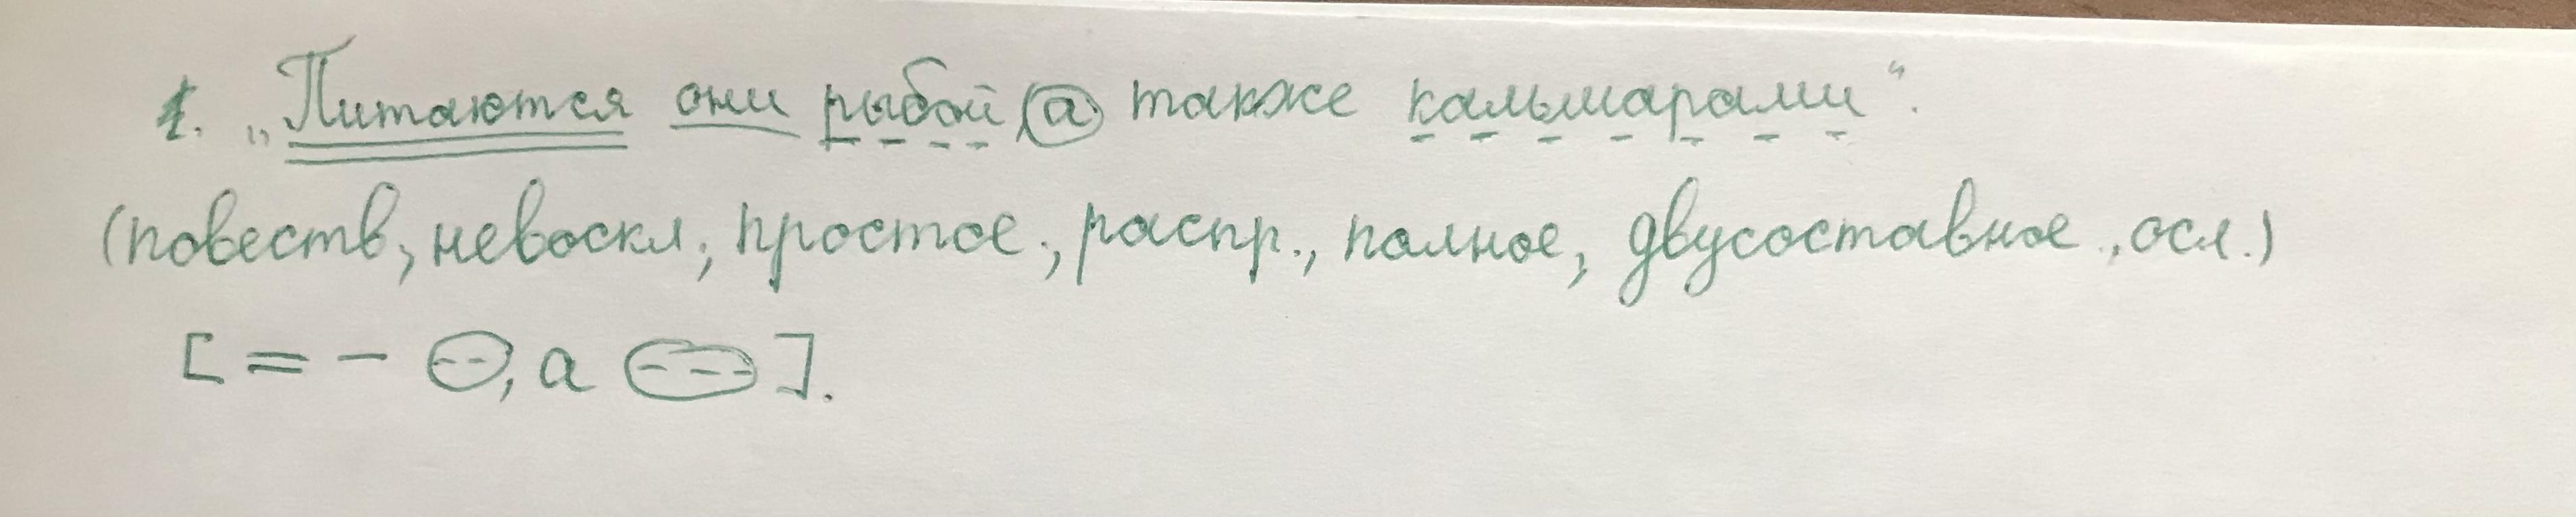 1. „Питаются они рыбой, а также кальмарами“.
(повеств, невоскл, простое, распр., полное, двусоставное, осл.)
[= - --, а ---].